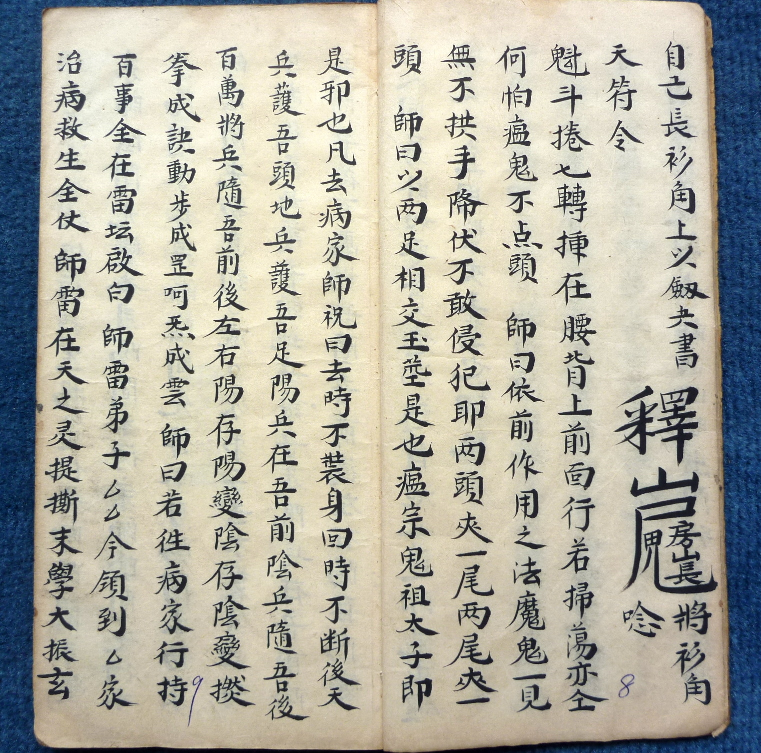 自己長衫角上以劔夬書
將衫角
天符令
唸
魁斗捲七轉揷在腰背上前面行若掃蕩亦仝
何怕瘟鬼不点頭　師曰依前作用之法魔鬼一見
無不拱手降伏不敢侵犯耶两頭夾一尾两尾夾一
頭　師曰以两足相交玉莝是也瘟宗鬼祖太子即
是邪也凡去病家師祝曰去時不裝身回時不断後天
兵䕶吾頭地兵䕶吾足陽兵在吾前陰兵隨吾後
百萬將兵隨吾前後左右陽存陽變陰存陰變撚
拳成訣動步成罡呵炁成雲　師曰若徃病家行持
百事全在雷坛啟白　師雷弟子厶厶今領到厶家
治病救生全仗　師雷在天之灵提撕末學大振玄
8
9